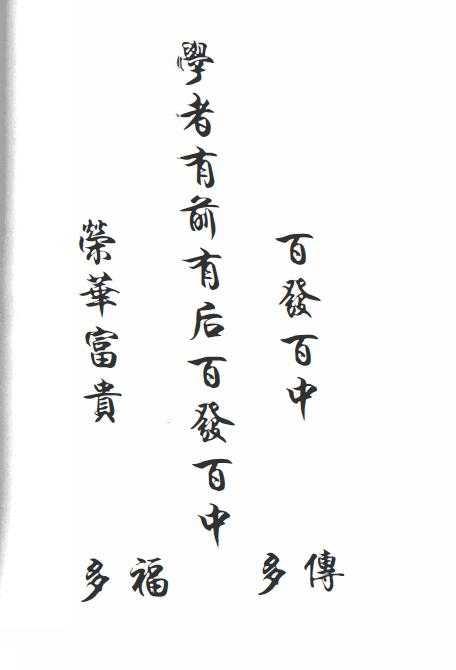 百發百中
學者有前有后百發百中
榮華富貴
傳多
福多